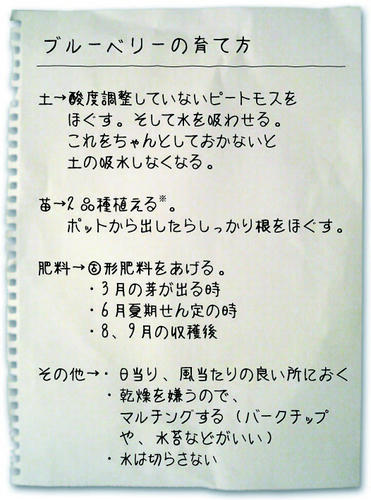 ブルーベリーの育て方
土→酸度調整していないピートモスを
ほぐす。そして水を吸わせる。
これをちゃんとしておかないと
土の吸水しなくなる。
苗→2品種植える※。
ポットから出したらしっかり根をほぐす。
肥料→固形肥料をあげる。
・3月の芽が出る時
・6月夏期せん定の時
・8、9月の収穫後
その他→・日当り、風当たりの良い所におく
・乾燥を嫌うので、
マルチングする(バークチップ
や、水苔などがいい)
・水は切らさない